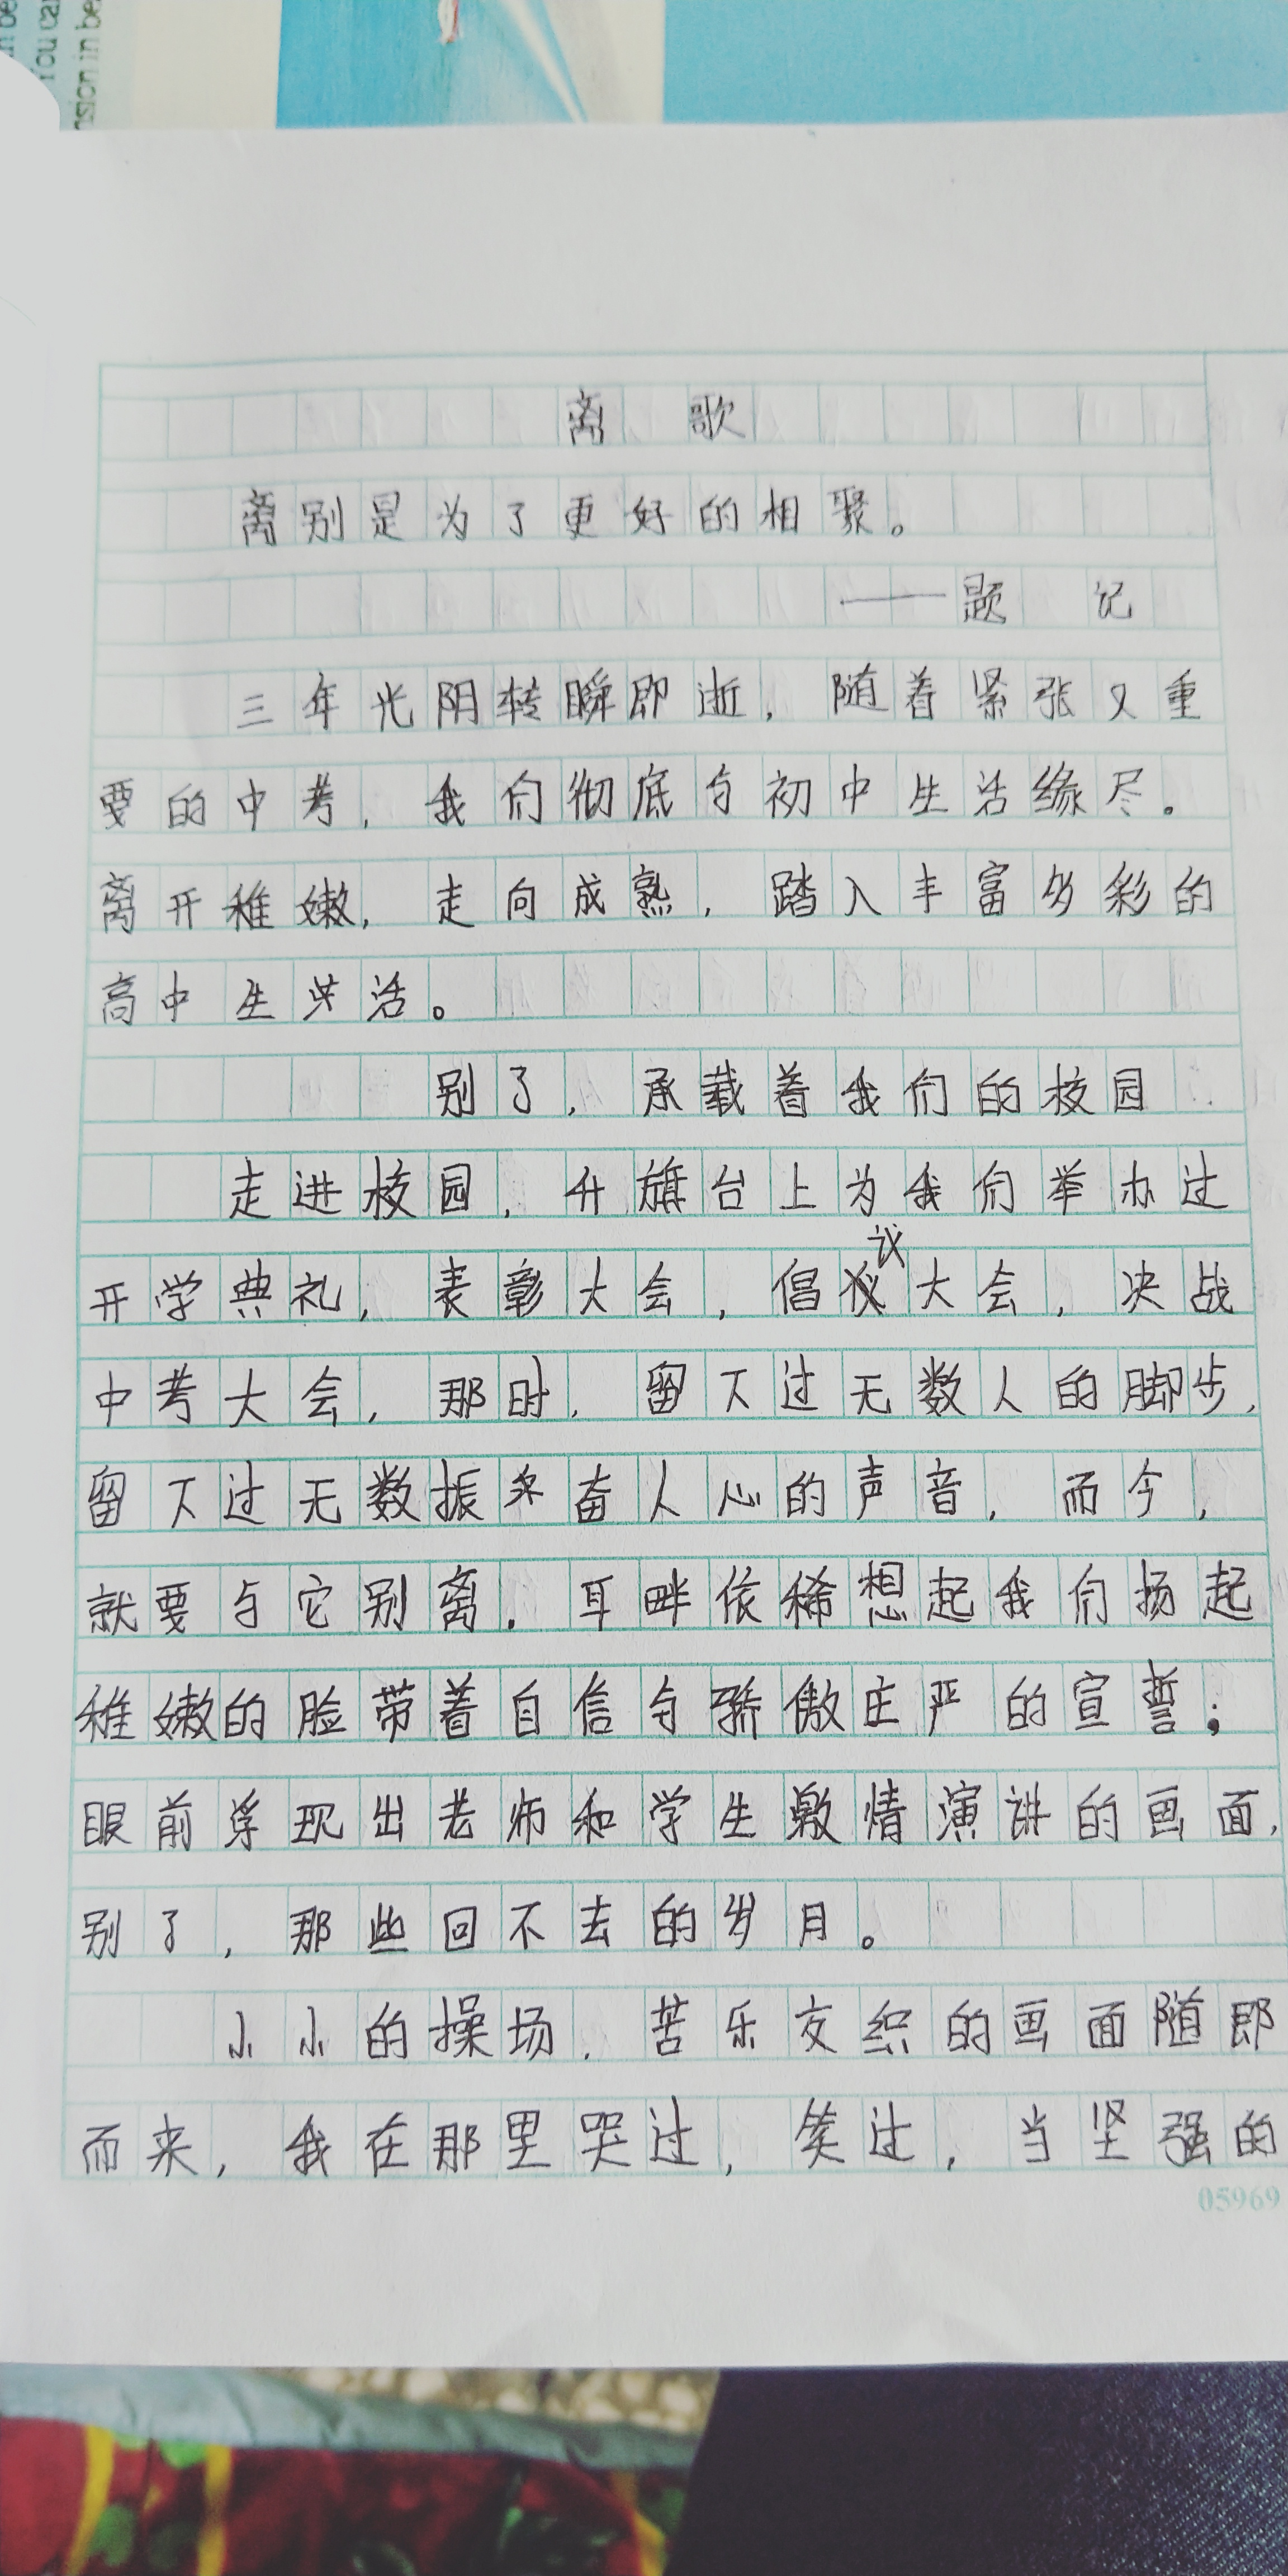 n be
You can
nsion in be
离 歌
离别是为了更好的相聚。
——题 记
三年光阴转瞬即逝，随着紧张又重
要的中考，我们彻底与初中生活缘尽。
离开稚嫩，走向成熟，踏入丰富多彩的
高中生活。
别了，承载着我们的校园
走进校园，升旗台上为我们举办过
开学典礼，表彰大会，倡议大会，决战
中考大会，那时，留下过无数人的脚步，
留下过无数振奋人心的声音，而今，
就要与它别离。耳畔依稀想起我们扬起
稚嫩的脸带着自信与骄傲庄严的宣誓；
眼前浮现出老师和学生激情演讲的画面，
别了，那些回不去的岁月。
小小的操场，苦乐交织的画面随即
而来，我在那里哭过，笑过，当坚强的
05969